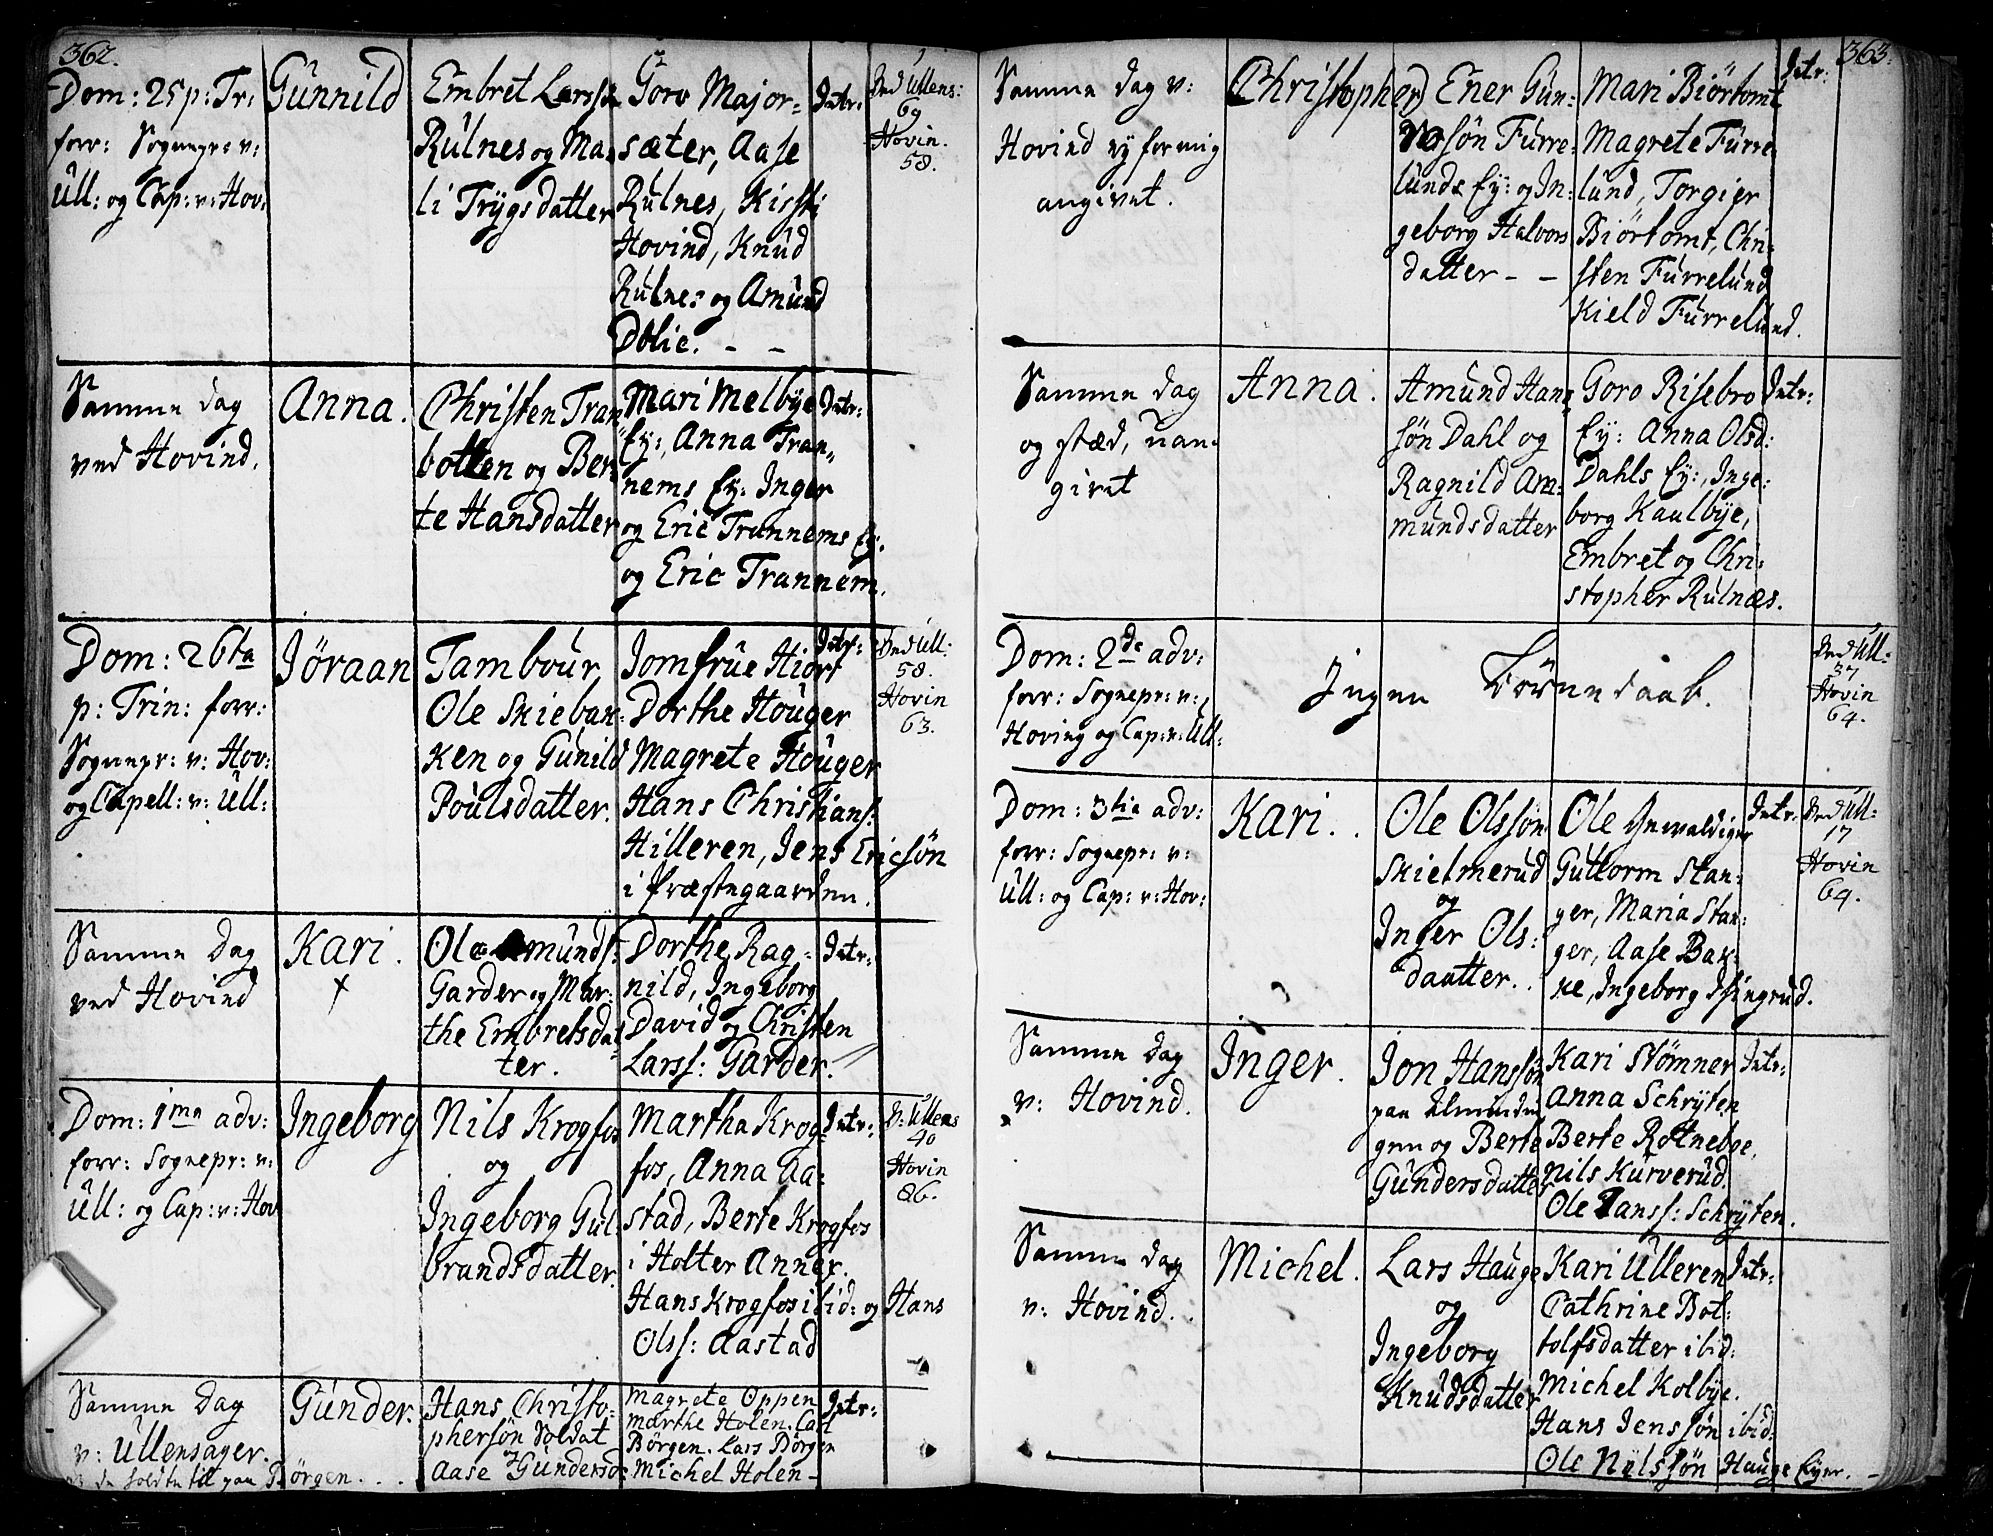 362.
Dom: 25 p: Tr:
forr: Sognepr: v:
Ull: og Cap: v: Hov:
Gunnild
Embret Larssøn
Rulnes og Ma-
li Trygsdatter
Goro Major-
sæter, Aase
Rulnes, Kisti
Hovind, Knud
Rulnes og Amund
Dølie. - -
Intr:
Ved Ullens:
69
Hovin.
58.
Samme dag
ved Hovind.
Anna.
Christen Tran
botten og Ber-
te Hansdatter
Mari Melbye
Ey:, Anna Tran-
nems Ey: Inger
og Eric Trannems Ey:
og Eric Trannem.
Intr:
Dom: 26ta
p: Trin: forr:
Sognepr: v: Hov:
og Capell: v: Ull:
Jöraan
Tambour,
Ole Skiebak-
ken og Gunild
Poulsdatter.
Jomfrue Hiort
Dorthe Houger
Magrete Houger
Hans Christians:
Hilleren, Jens Ericsøn
i Præstegaarden.
Intr:
Ved Ull:
58.
Hovin
63.
Samme Dag
ved Hovind
Kari.
x
Ole Amunds:
Garder og Mar-
the Embretsdat-
ter.
Dorthe, Rag-
nild, Ingeborg
David og Christen
Larss: Garder.
Intr:
Dom: 1ma adv:
forr: Sognepr: v:
Ull: og Cap: v: Hov
Ingeborg
Nils Krogfos
og
Ingeborg Gul-
brandsdatter.
Martha Krog-
fos, Anna Aa-
stad, Berte Krogfos
i Holter Annex.
Hans Krogfos ibid: og Hans
Olss: Aastad
Intr:
V: Ullens
40
Hovin
86.
Samme Dag
v: Ullensager.
de holdte til paa Børgen.
Gunder.
Hans Christo-
phersøn Soldat
og
Aase Gundersd:
Magrete Oppen
Marthe Holen. Carl
Børgen. Lars Børgen
Michel Holen -
Intr:
363.
Samme dag v:
Hovind ey for mig
angivet.
Christopher
Ener Gun-
søn Furre-
lunds Ey: og In-
geborg Halvors
datter - -
Mari Biörtomt
Magrete Furre
lund, Torgier
Biörtomt, Chri-
sten Furrelund
Kield Furrelund.
Intr:
Samme dag
og stæd, uan-
givet
Anna.
Amund Han-
søn Dahl og
Ragnild Am-
mundsdatter
Goro Risebro
Ey: Anna Olsd:
Dahls Ey:, Inge-
borg Kaulbye,
Embret og Chri-
stopher Rulnæs.
Intr:
Dom: 2de adv:
forr: Sognepr: v:
Hoving og Cap: v: Ull:
Ingen Börnedaab.
Ved Ull:
37
Hovin
64.
Dom: 3tie adv:
forr: Sognepr: v:
Ull: og Cap: v: Hov:
Kari.
Ole Olssøn
Skielmerud
og
Inger Ols-
daatter.
Ole Gewaldiger
Guttorm Stan-
ger, Maria Stan-
ger, Aase Bak-
ke, Ingeborg Isingrud.
Intr.
Ved Ull:
17
Hovin
69.
Samme dag
v: Hovind.
Inger.
Jon Hanssøn
paa Almindin
gen og Berte
Gundersdatter
Kari Stømner
Anna Schryten
Berte Rotneboe,
Nils Kurverud.
Ole Hanss: Schryten.
Intr:
Samme dag
v: Hovind.
Michel.
Lars Hauge
og
Ingeborg
Knudsdatter
Kari Ulleren
Cathrine Bot-
tolfsdatter ibid:
Michel Kolbye.
Hans Jenssøn ibid:
Ole Nilssøn Hauge Eyer. -
Intr: